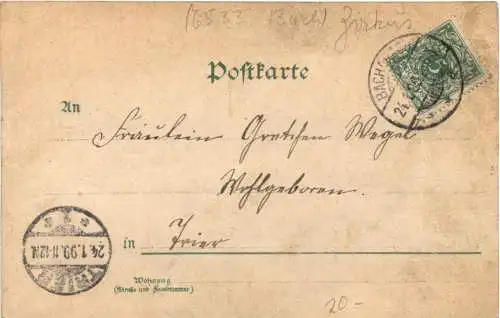 Postkarte
BACH
24
An
Fräulein Gretchen Wegel
Wohlgeboren
in Trier
TRIER
24.1.99.11-12V.
Wohnung
(Straße und Hausnummer)
20-